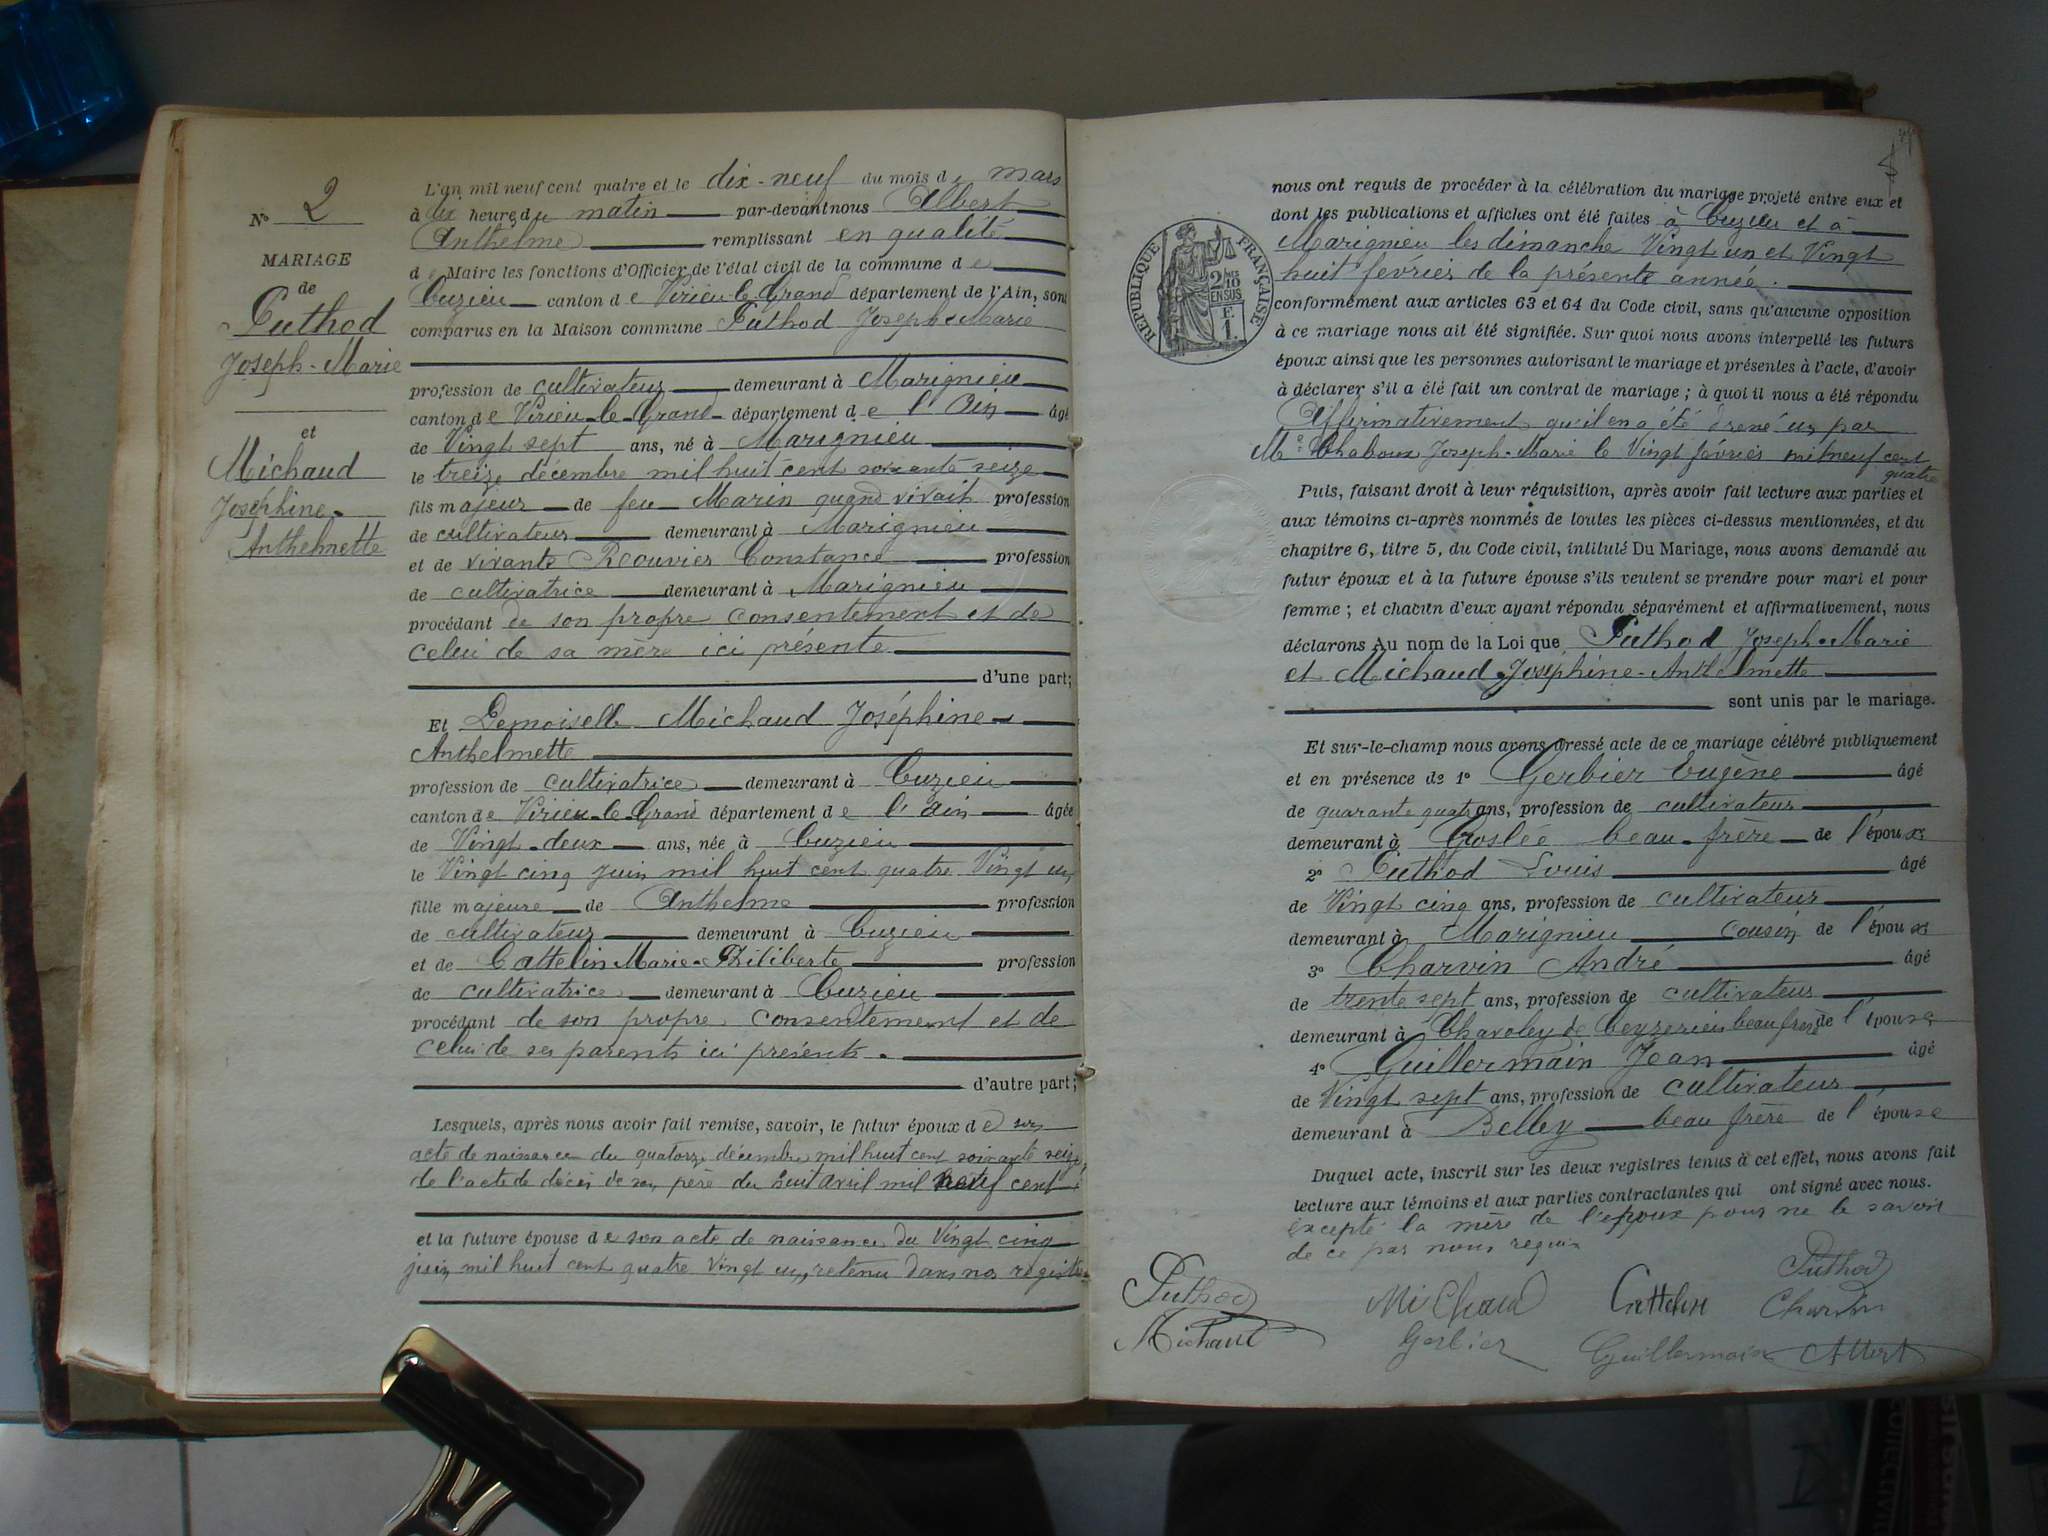 N° 2
MARIAGE
de
Puthod
Joseph-Marie
et
Michaud
Joséphine-
Anthelmette
L'an mil neuf cent quatre et le dix-neuf du mois de mars
à dix heures du matin par-devant nous Albert
Anthelme remplissant en qualité
de Maire les fonctions d'Officier de l'état civil de la commune de
Cuzieu canton de Virieu-le-Grand département de l'Ain, sont
comparus en la Maison commune Puthod Joseph-Marie
profession de cultivateur demeurant à Marignieu
canton de Virieu-le-Grand département de l'Ain âgé
de Vingt sept ans, né à Marignieu
le treize décembre mil huit cent soixante seize
fils majeur de feu Marin quand vivait profession
de cultivateur demeurant à Marignieu
et de vivante Rouvier Constance profession
de cultivatrice demeurant à Marignieu
procédant de son propre consentement et de
celui de sa mère ici présente
d'une part;
Et Demoiselle Michaud Joséphine-
Anthelmette
profession de cultivatrice demeurant à Cuzieu
canton de Virieu-le-Grand département de l'Ain âgée
de Vingt-deux ans, née à Cuzieu
le Vingt cinq juin mil huit cent quatre Vingt un
fille majeure de Anthelme profession
de cultivateur demeurant à Cuzieu
et de Cattelin Marie-Philiberte profession
de cultivatrice demeurant à Cuzieu
procédant de son propre consentement et de
celui de ses parents ici présents.
d'autre part;
Lesquels, après nous avoir fait remise, savoir, le futur époux de son
acte de naissance du quatorze décembre mil huit cent soixante seize,
de l'acte de décès de son père du huit avril mil neuf cent
et la future épouse de son acte de naissance du Vingt cinq
juin mil huit cent quatre Vingt un, retenu dans nos registres
RÉPUBLIQUE FRANÇAISE
2/10 EN SUS
E
1.
nous ont requis de procéder à la célébration du mariage projeté entre eux et
dont les publications et affiches ont été faites à Cuzieu et à
Marignieu les dimanche Vingt un et Vingt
huit février de la présente année.
conformément aux articles 63 et 64 du Code civil, sans qu'aucune opposition
à ce mariage nous ait été signifiée. Sur quoi nous avons interpellé les futurs
époux ainsi que les personnes autorisant le mariage et présentes à l'acte, d'avoir
à déclarer s'il a été fait un contrat de mariage; à quoi il nous a été répondu
Affirmativement qu'il en a été dressé un par
Me Chaboux Joseph-Marie le Vingt février mil neuf cent
quatre
Puis, faisant droit à leur réquisition, après avoir fait lecture aux parties et
aux témoins ci-après nommés de toutes les pièces ci-dessus mentionnées, et du
chapitre 6, titre 5, du Code civil, intitulé Du Mariage, nous avons demandé au
futur époux et à la future épouse s'ils veulent se prendre pour mari et pour
femme; et chacun d'eux ayant répondu séparément et affirmativement, nous
déclarons Au nom de la Loi que Puthod Joseph-Marie
et Michaud Joséphine-Anthelmette
sont unis par le mariage.
Et sur-le-champ nous avons dressé acte de ce mariage célébré publiquement
et en présence de 1° Gerbier Eugène âgé
de quarante quatre ans, profession de cultivateur
demeurant à Groslée beau-frère de l'époux
2° Puthod Louis âgé
de Vingt cinq ans, profession de cultivateur
demeurant à Marignieu cousin de l'époux
3° Charvin André âgé
de trente sept ans, profession de cultivateur
demeurant à Chavoley de Ceyzerieu beau frère de l'épouse
4° Guillermain Jean âgé
de Vingt sept ans, profession de cultivateur
demeurant à Belley beau frère de l'épouse
Duquel acte, inscrit sur les deux registres tenus à cet effet, nous avons fait
lecture aux témoins et aux parties contractantes qui ont signé avec nous.
excepté la mère de l'époux pour ne le savoir
de ce par nous requis
Puthod Michaud Cattelin Puthod
Michaud Gerbier Guillermain Charvin Albert